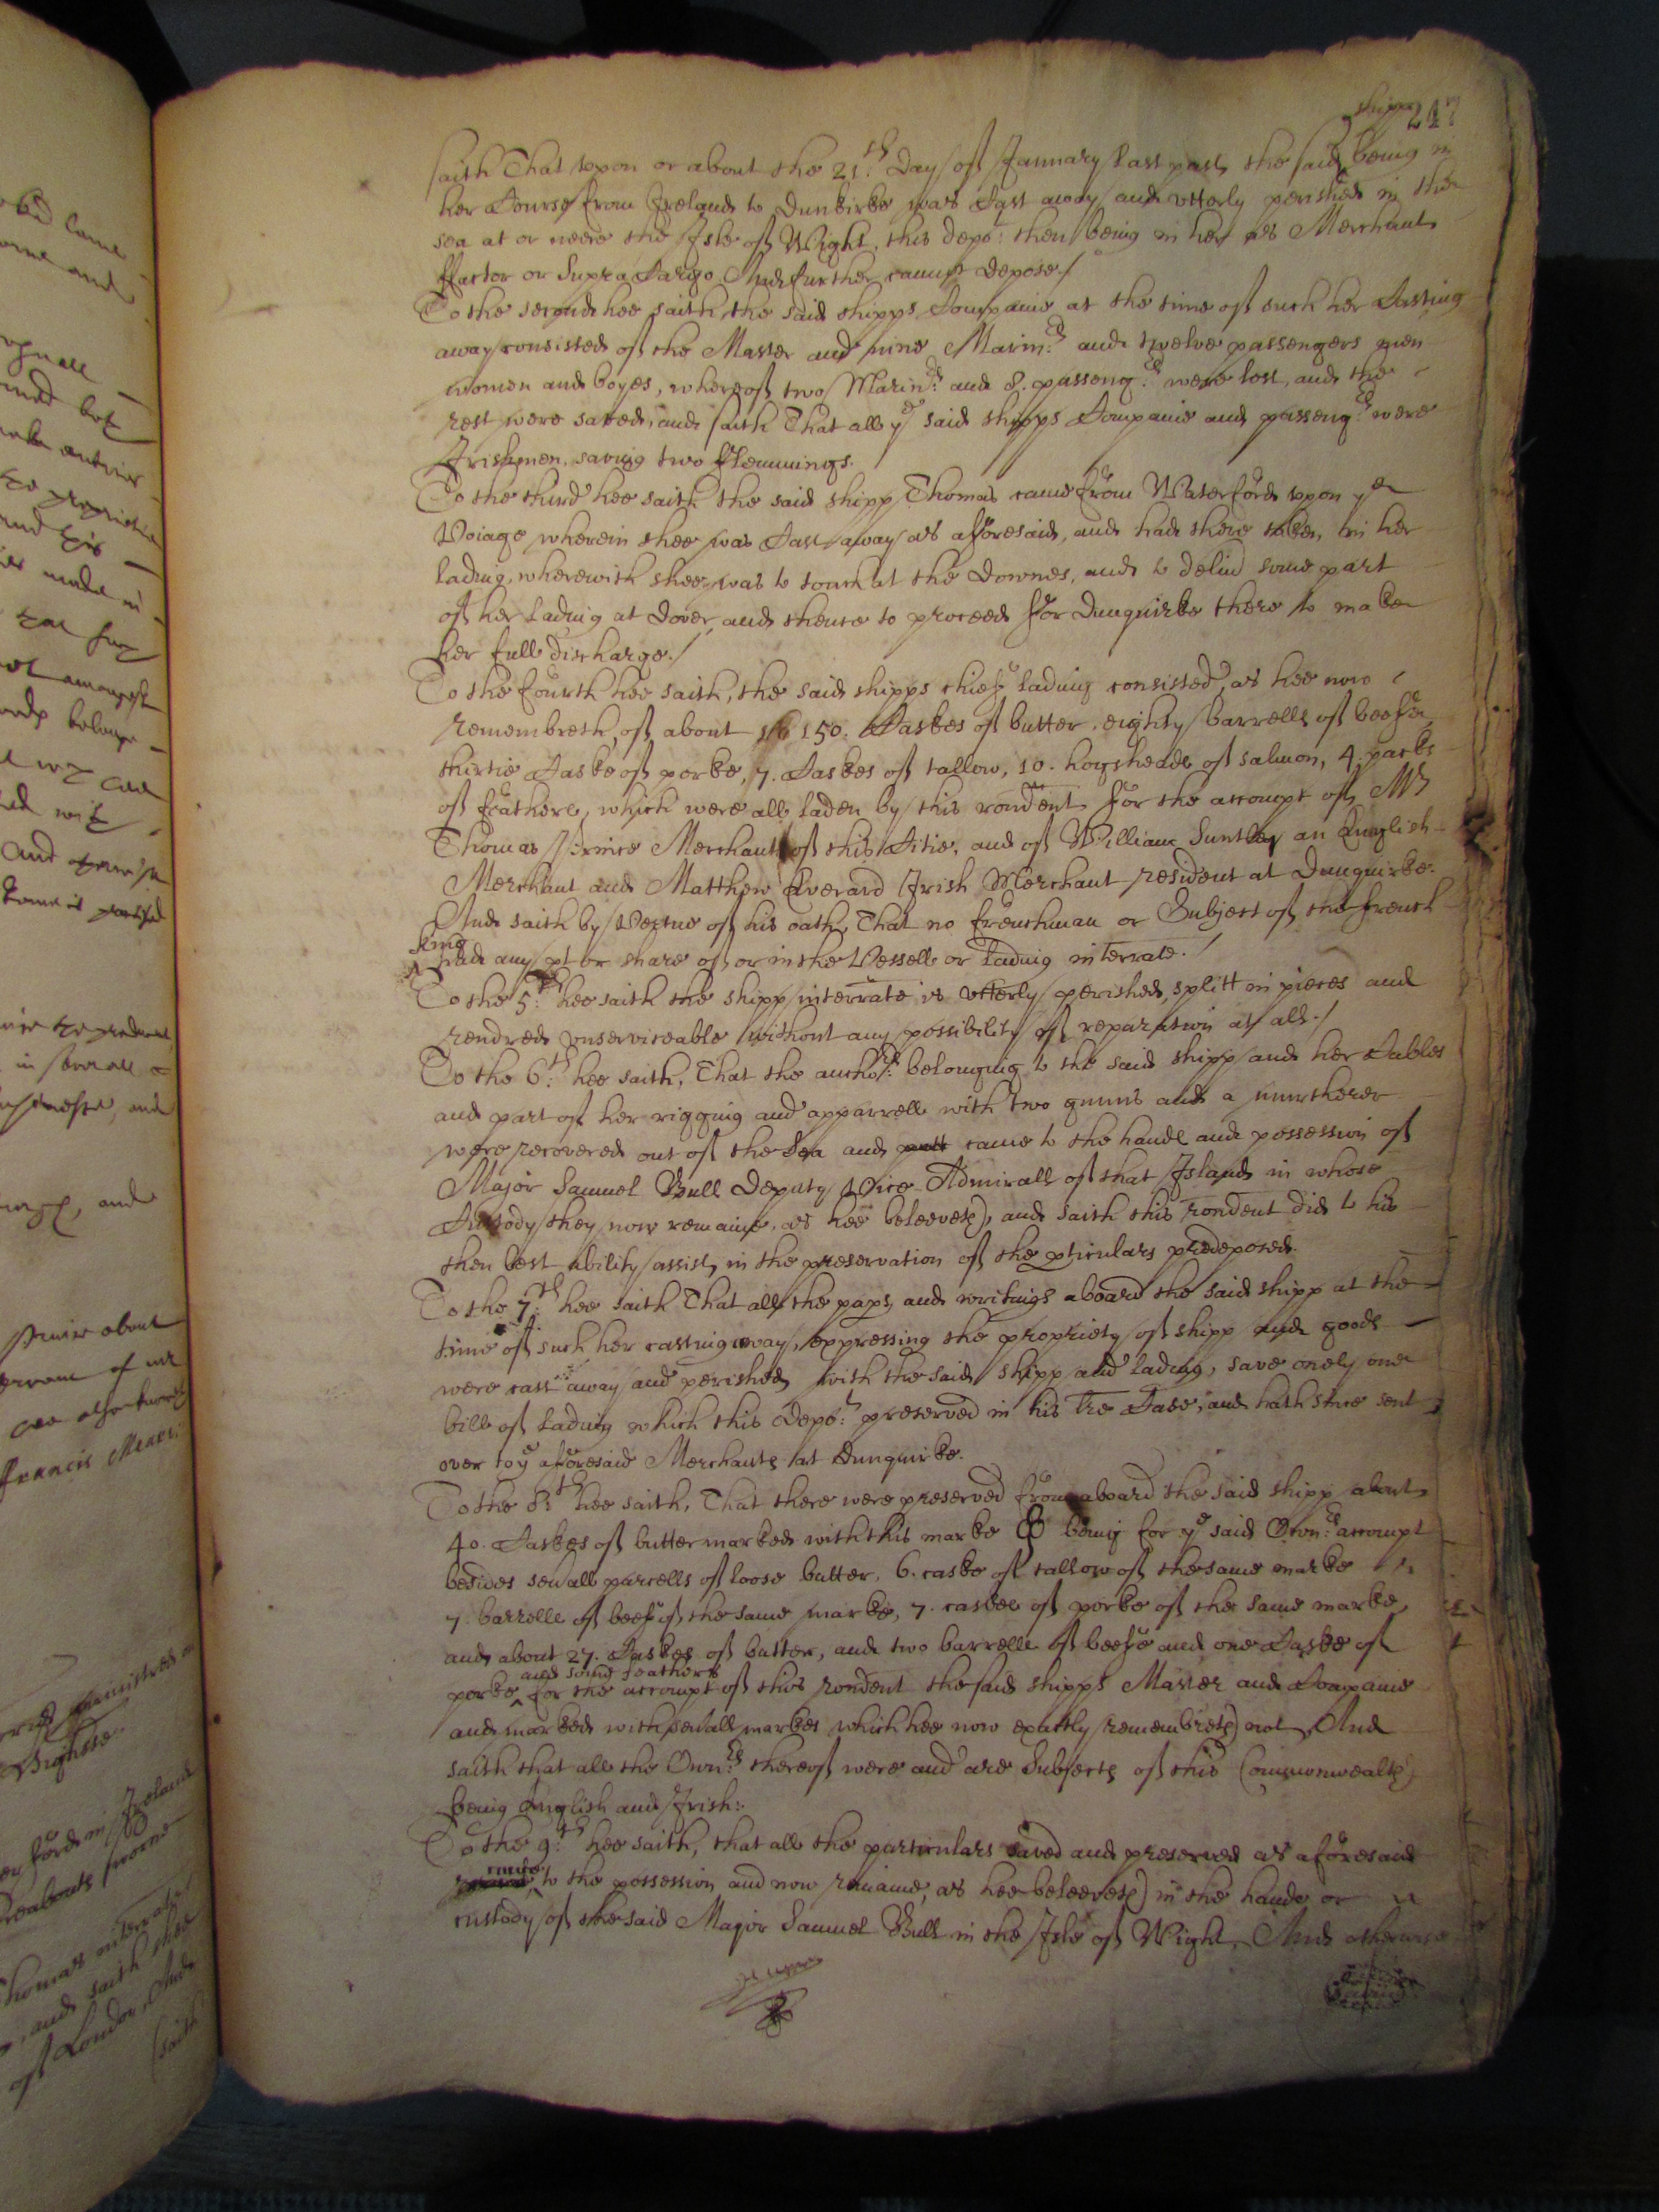 shipp 247
saith That upon or about the 21th. day of January last past, the said being in
her Course from Ireland to Dunkirke was Cast away and utterly perished in the
sea at or neere the Isle of Wight, this depot: then being in her as Merchant
ffactor or Supra Cargo And further cannot depose./
To the second hee saith, the said shipps Companie at the time of such her Casting
away consisted of the Master and nine Marinrs: and twelve passengers men
women and boyes, whereof two Marinrs: and 8. passengrs: were lost, and the
rest were saved, and saith That all ye said shipps Companie and passengrs were
Irishmen, saving two fflemmings.
To the third hee saith the said shipp Thomas came from Waterford upon ye
Voiage wherein shee was Cast away as aforesaid, and had there taken in her
lading, wherewith shee was to touch at the Downes, and to deliud some part
of her lading at Dover, and thence to proceed for Dunquirke there to make
her full discharge./
To the fourth hee saith, the said shipps chief lading consisted, as hee now
remembreth, of about 150. Caskes of butter, eighty barrells of beefe,
thirtie Caske of porke, 7. Caskes of tallow, 10. hogsheads of salmon, 4. packs
of feathers, which were all laden by this rondent for the accompt of Mr
Thomas Prince Merchant of this Citie, and of William an English
Merchant and Matthew Everard Irish Merchant resident at Dunquirke.
And saith by Vertue of his oath, That no frenchman or Subject of the french
King
had any pt or share of or in the Vessell or lading interrate./
To the 5th: hee saith the shipp interrate is utterly perished, splitt in pieces and
rendred unserviceable without any possibility of reparation at all./
To the 6th: hee saith, That the anchors: belonging to the said shipp and her Cables
and part of her rigging and apparrell with two gunns and a murtherer
were recovered out of the Sea and came to the hands and possession of
Major Samuel Bull Deputy Vice Admirall of that Island in whose
Custody they now remaine, as hee beleeveth, and saith this rondent did to his
then best ability assist, in the preservation of the pticulars predeposed.
To the 7th: hee saith That all the paprs and writings aboard the said shipp at the
time of such her casting away, expressing the propriety of shipp and goods
were cast away and perished with the said shipp and lading, save onely one
bill of lading which this depot: preserved in his tre Case, and hath since sent
over to ye aforesaid Merchants at Dunquirke.
To the 8th: hee saith, That there were preserved from aboard the said shipp about
40. Caskes of butter marked with this marke being for ye said Ownrs: accompt
besides sevall parcells of loose butter, 6. caske of tallow of the same marke
7. barrells of beef of the same marke, 7. caskes of porke of the same marke,
and about 27. Caskes of butter, and two barrells of beefe and one Caske of
and some feathers
porke for the accompt of this rondent the said shipps Master and Companie
and marked with sevall markes which hee now exactly remembreth not, And
saith that all the Ownrs: thereof were and are Subjects of this Commonwealth
being English and Irish:.
To the 9th: hee saith, that all the particulars saved and preserved as aforesaid
came
to the possession and now remaine, as hee beleeveth in the hands or
custody of the said Major Samuel Bull in the Isle of Wight, And otherwise